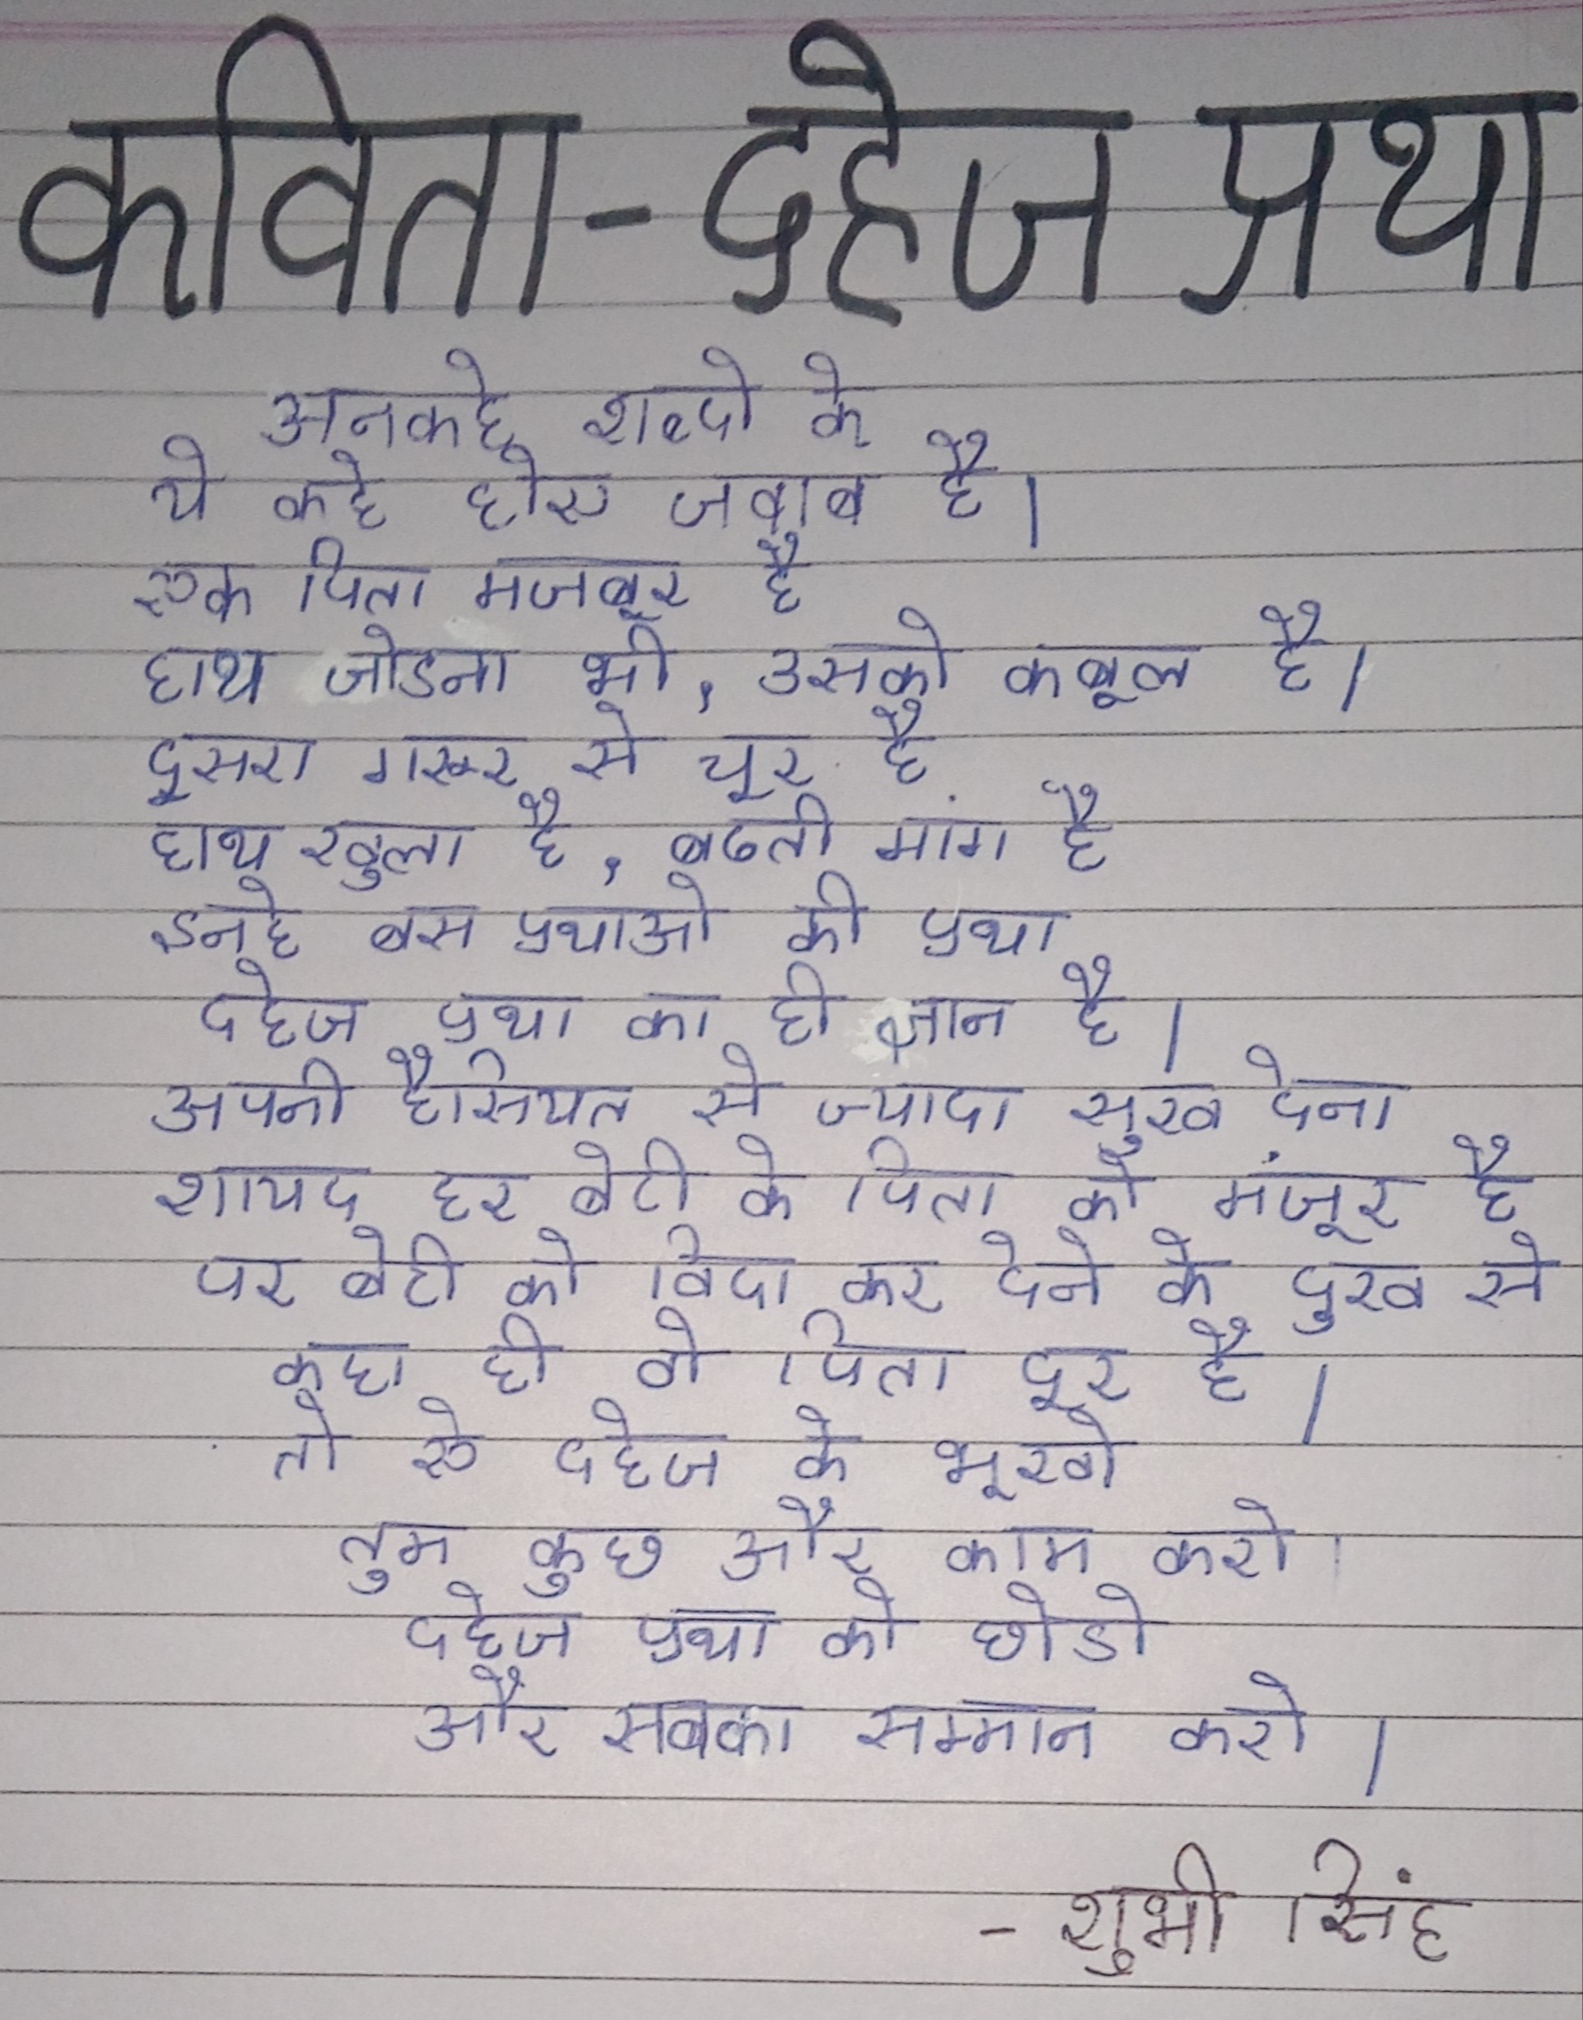 कविता - दहेज प्रथा
अनकहे शब्दो के
ये कहे होए जवाब है।
एक पिता मजबूर है
हाथ जोडना भी, उसको कबूल है।
दूसरा गरूर से चूर है
हाथ खुला है, बढती मांग है
इनहे बस प्रथाओ की प्रथा
दहेज प्रथा का ही ज्ञान है।
अपनी हैसियत से ज्यादा सुख देना
शायद हर बेटी के पिता को मंजूर है
पर बेटी को विदा कर देने के दुख से
कहा ही वो पिता दूर है।
तो ए दहेज के भूखो
तुम कुछ और काम करो।
दहेज प्रथा को छोडो
और सबका सम्मान करो।
- शुभी सिंह